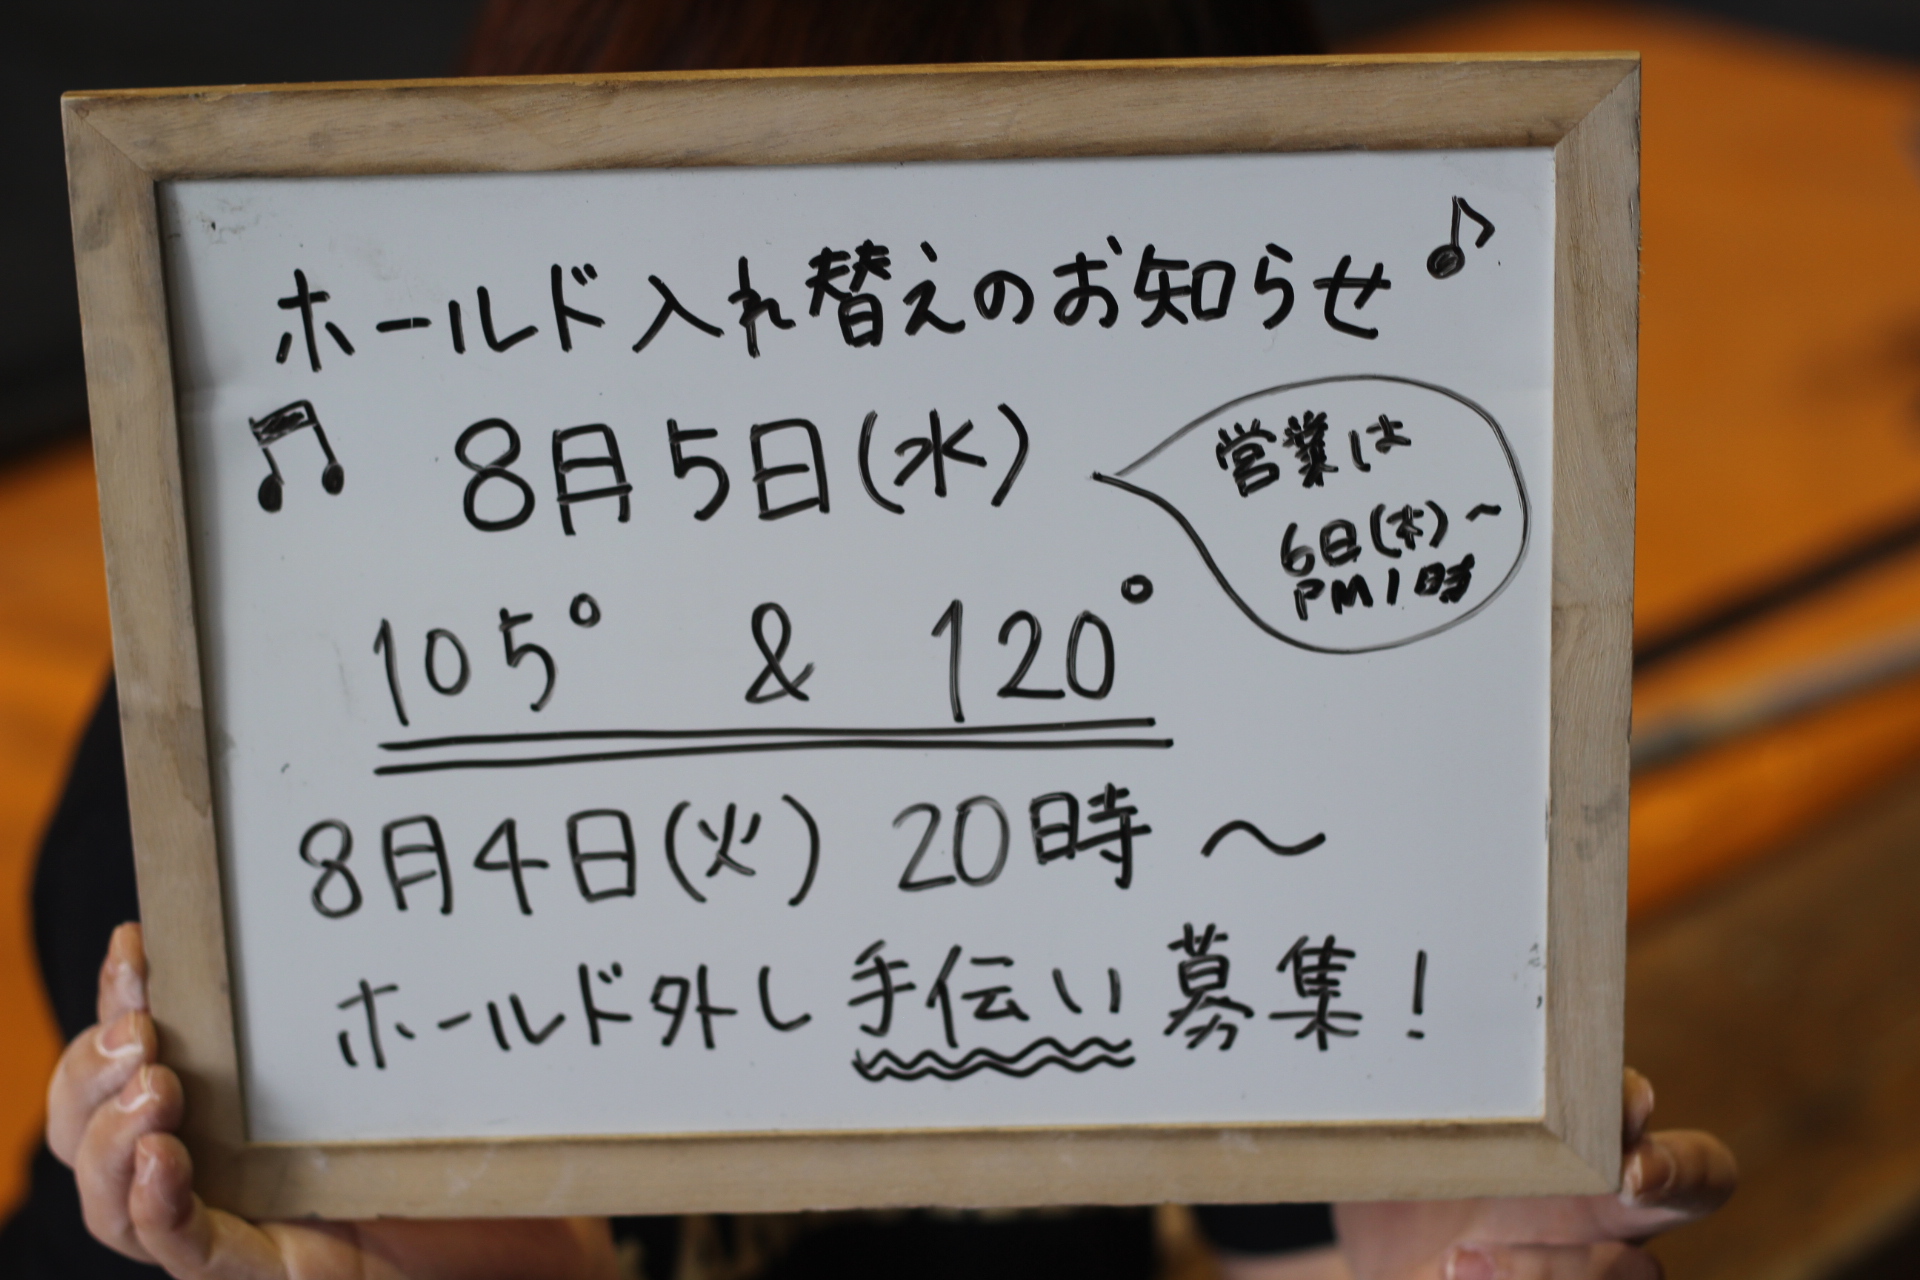 ホールド入れ替えのお知らせ♪
8月5日(水)
営業は
6日(木)~
PM1時
105° & 120°
8月4日(火) 20時~
ホールド外し手伝い募集!